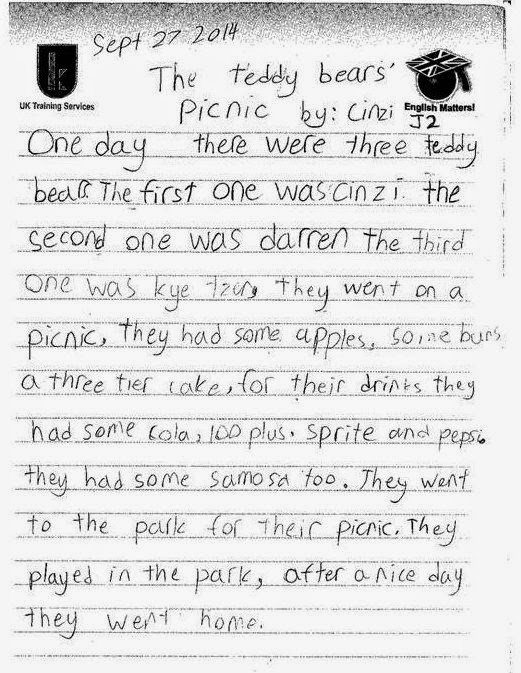 Sept 27 2014
UK Training Services
The teddy bears'
English Matters!
Picnic by: Cinzi J2
One day there were three teddy
bears. The first one was Cinzi. the
second one was darren the third
one was kye tzer, they went on a
picnic, they had some apples, some buns
a three tier cake, for their drinks they
had some Cola, 100 plus. Sprite and pepsi.
they had some samosa too. They went
to the park for their picnic. They
played in the park, after a nice day
they went home.